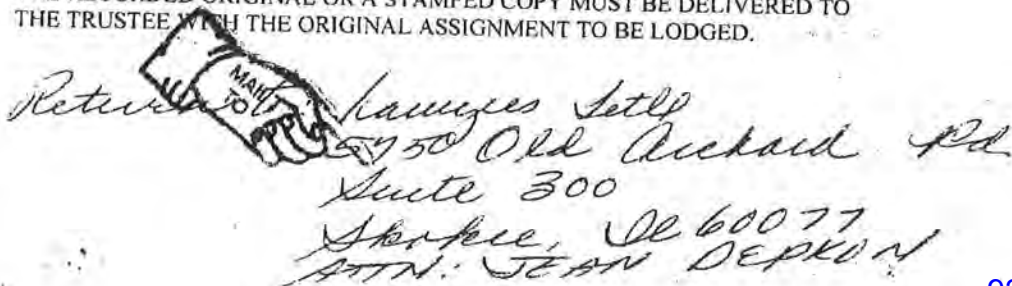 THE RECORDED ORIGINAL OR A STAMPED COPY MUST BE DELIVERED TO
THE TRUSTEE WITH THE ORIGINAL ASSIGNMENT TO BE LODGED.
MAIL
TO
Return to
Lawyers Title
5750 Old Orchard Rd
Suite 300
Skokie, Il 60077
ATTN: JEAN DEPKON